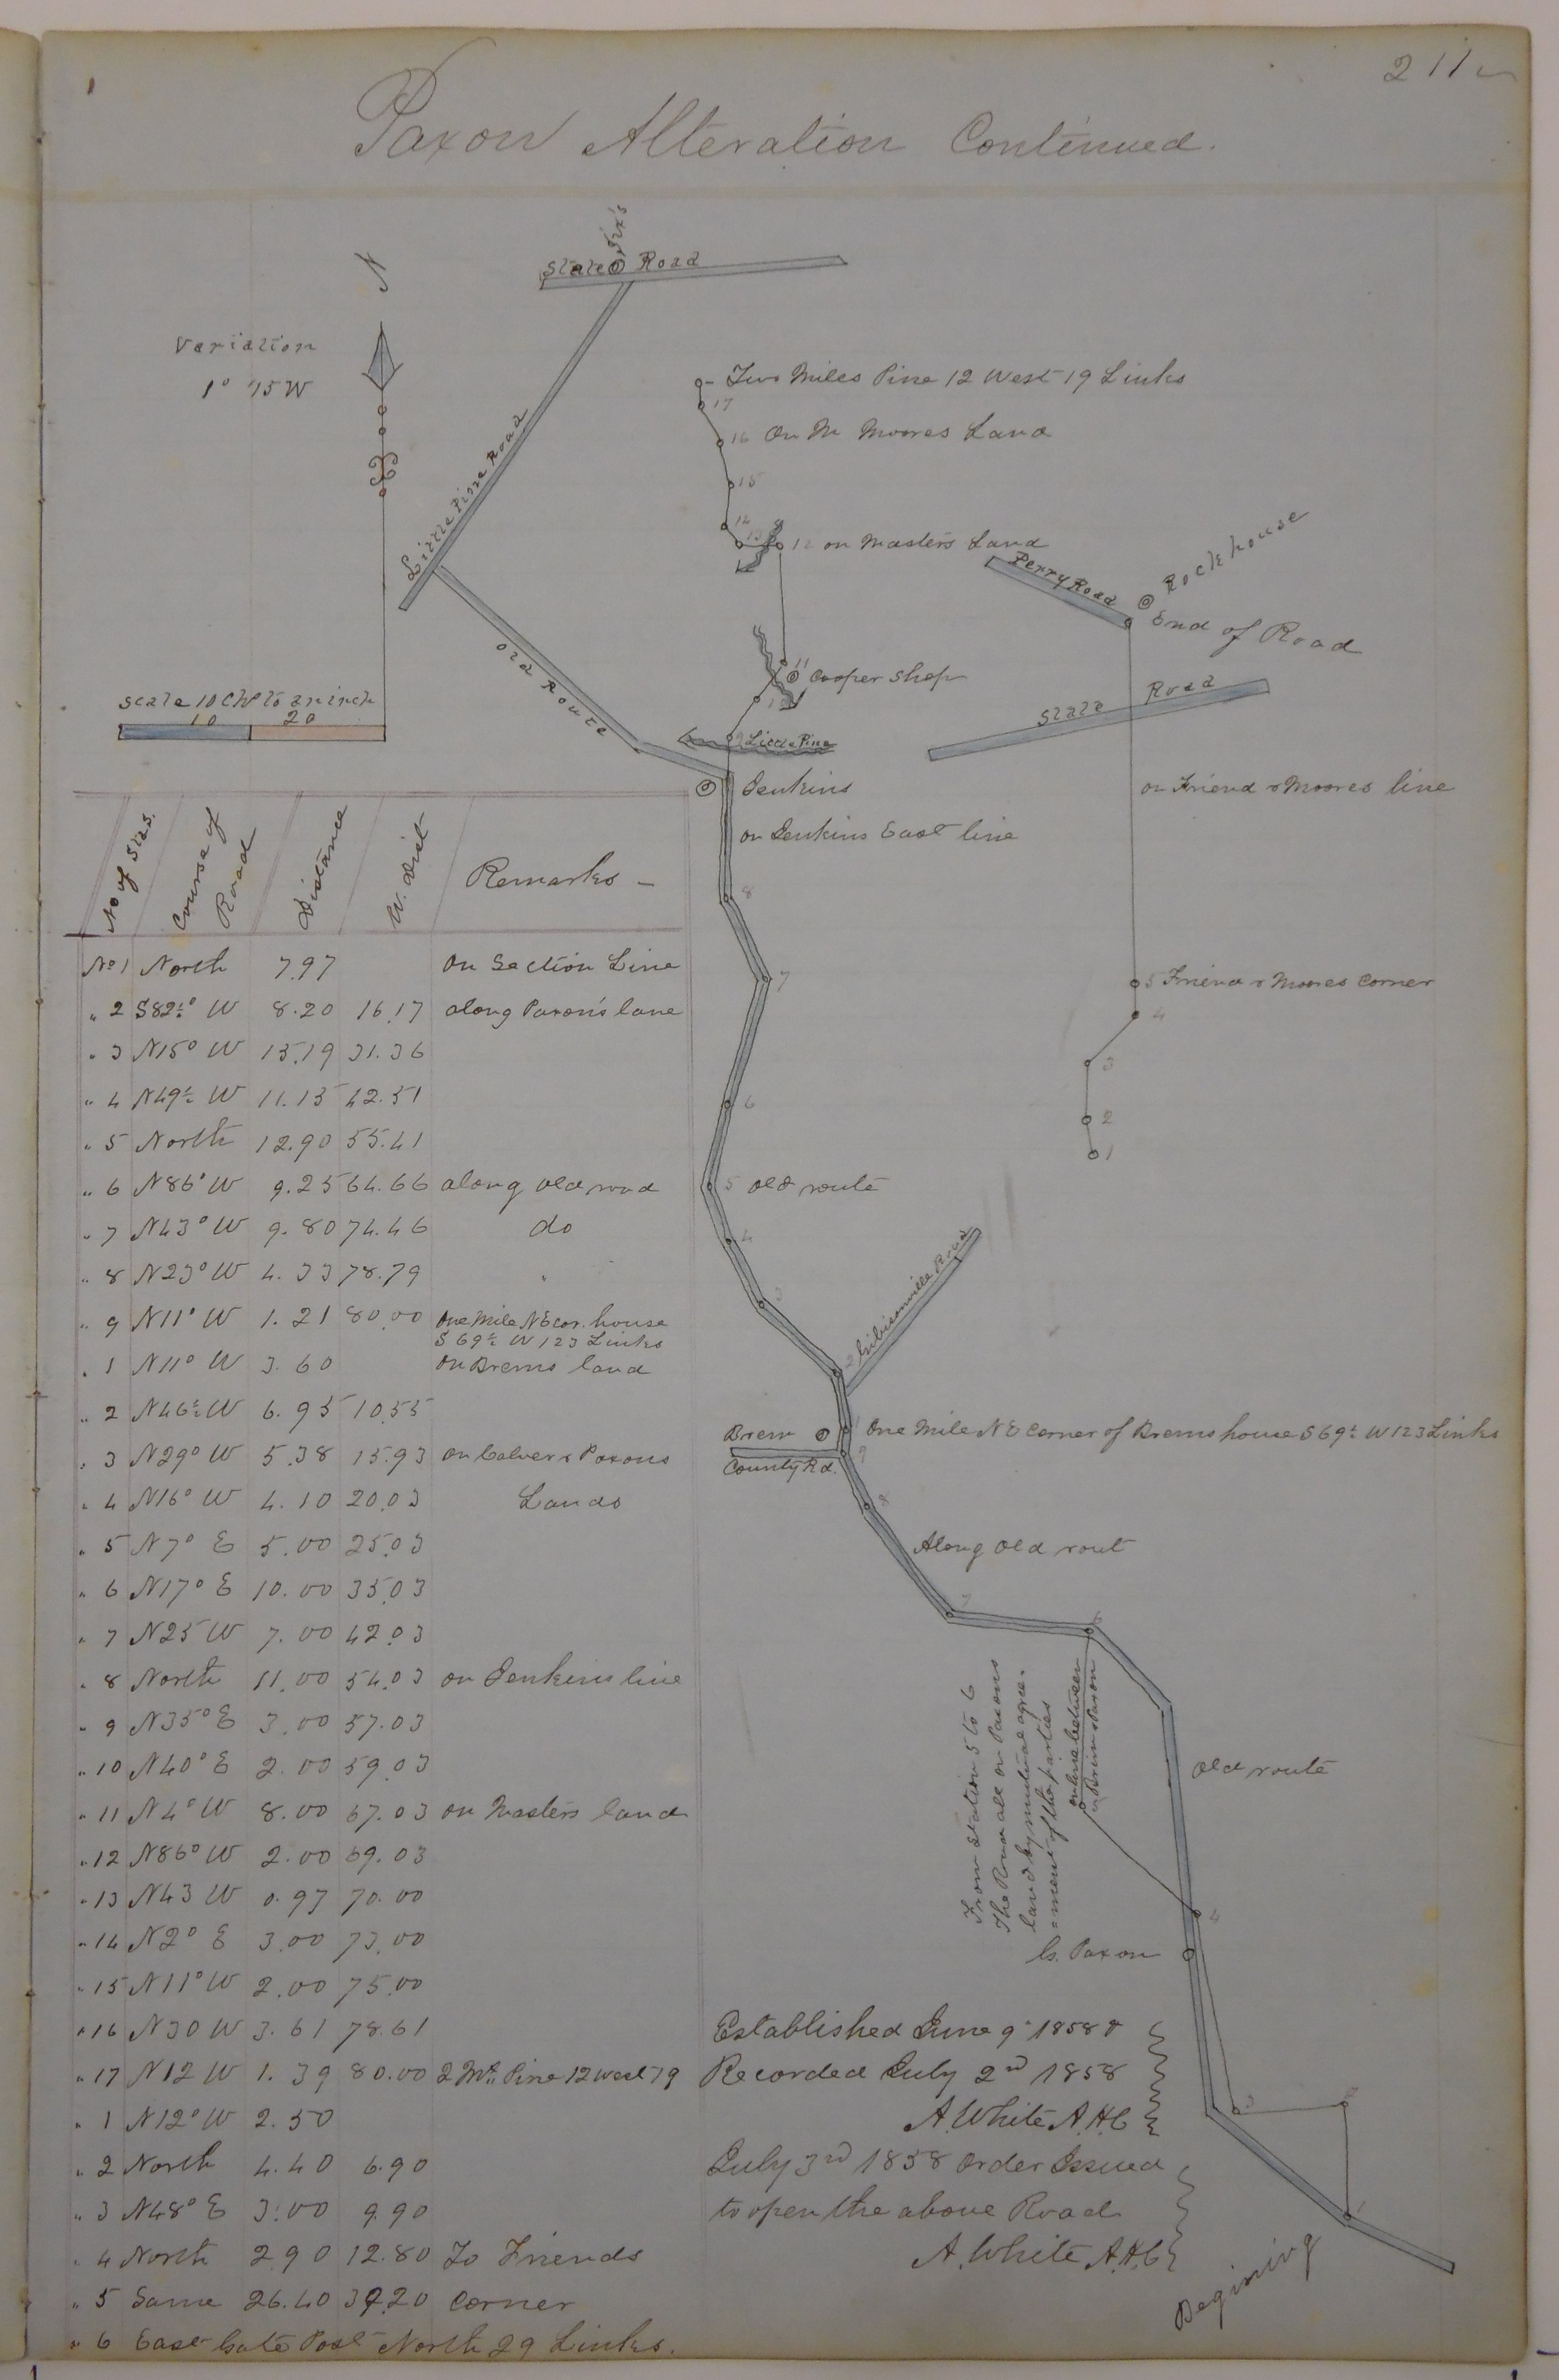 211
Paxon Alteration Continued.
N
Variation
1° 45 W
State Road
Little Pine Road
Old Route
Scale 10 Ch to an inch
10 20
Two Miles Pine 12 West 19 Links
17
16 On M Moores Land
15
14
13
12 on Masters Land
11 Cooper Shop
10
9 Little Pine
Jenkins
on Jenkins East line
8
7
6
5 old route
4
3
2 Gibisonville Road
1 One Mile N E Corner of Brems house S 69½ W 123 Links
Brem
County Rd.
9
8
Along old rout
7
6
on line between
Brem & Paxon
From Station 5 to 6
The Road all on Paxons
land by mutual agree-
=ment of the parties
old route
4
G. Paxon
3
2
1
Begining
Perry Road
Rockhouse
End of Road
State Road
on Friend & Moores line
5 Friend & Moores Corner
4
3
2
1
No of Stas. Course of Road Distance W. Dist Remarks –
No 1 North 7.97 On Section Line
" 2 S82½° W 8.20 16.17 along Paxon's lane
" 3 N15° W 15.19 31.36
" 4 N49½ W 11.15 42.51
" 5 North 12.90 55.41
" 6 N86° W 9.25 64.66 along old road
" 7 N43° W 9.80 74.46 do
" 8 N23° W 4.33 78.79 "
" 9 N11° W 1.21 80.00 One Mile N E cor. house
S 69½ W 123 Links
" 1 N11° W 3.60 On Brems land
" 2 N46½ W 6.95 10.55
" 3 N29° W 5.38 15.93 on Calver & Paxons
" 4 N16° W 4.10 20.03 Lands
" 5 N7° E 5.00 25.03
" 6 N17° E 10.00 35.03
" 7 N25 W 7.00 42.03
" 8 North 11.00 54.03 on Jenkins line
" 9 N35° E 3.00 57.03
" 10 N40° E 2.00 59.03
" 11 N4° W 8.00 67.03 on Masters land
" 12 N86° W 2.00 69.03
" 13 N43 W 0.97 70.00
" 14 N2° E 3.00 73.00
" 15 N11° W 2.00 75.00
" 16 N30 W 3.61 78.61
" 17 N12 W 1.39 80.00 2 Ml. Pine 12 West 19
" 1 N12° W 2.50
" 2 North 4.40 6.90
" 3 N48° E 3.00 9.90
" 4 North 2.90 12.80 To Friends
" 5 Same 26.40 39.20 Corner
" 6 East Gate Post North 29 Links.
Established June 9th 1858 &
Recorded July 2nd 1858
A. White A.H.C
July 3rd 1858 Order Issued
to open the above Road
A. White A.H.C